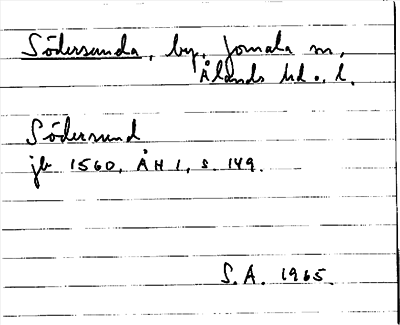 Södersunda, by, Jomala sn,
Ålands hd o. l.
Södersund
jb 1560, ÅH 1, s. 149.
S.A. 1965.